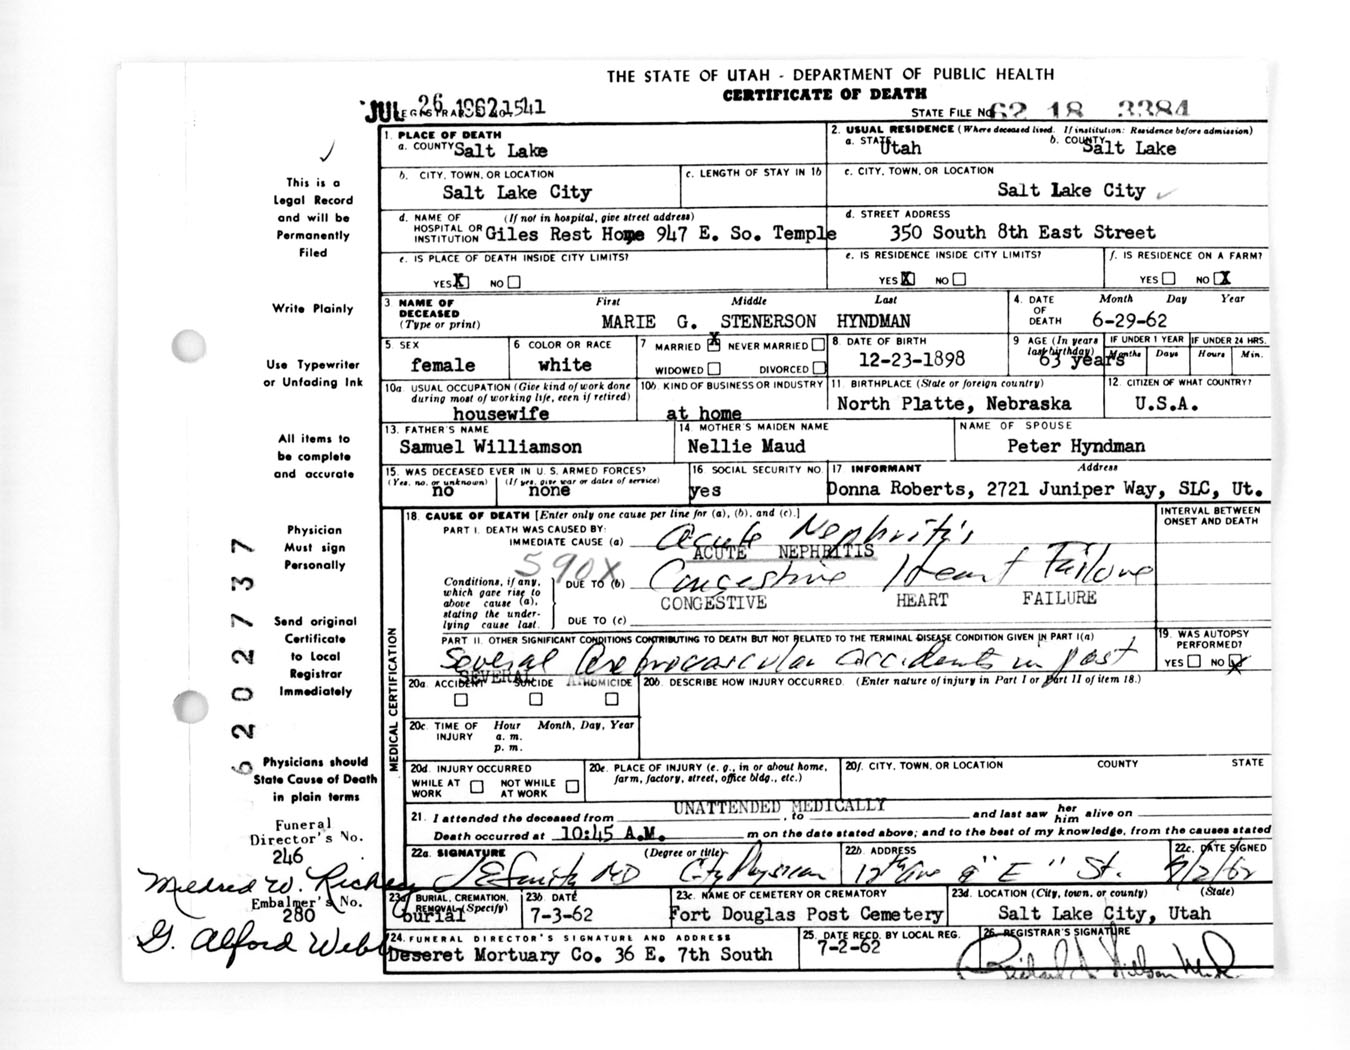 THE STATE OF UTAH - DEPARTMENT OF PUBLIC HEALTH
CERTIFICATE OF DEATH
JUL 26 1962 1541
STATE FILE NO. 62 18 3384
1. PLACE OF DEATH
a. COUNTY Salt Lake
2. USUAL RESIDENCE (Where deceased lived. If institution: Residence before admission)
a. STATE Utah b. COUNTY Salt Lake
b. CITY, TOWN, OR LOCATION
Salt Lake City
c. LENGTH OF STAY IN 1b
c. CITY, TOWN, OR LOCATION
Salt Lake City
d. NAME OF HOSPITAL OR INSTITUTION (If not in hospital, give street address)
Giles Rest Home 947 E. So. Temple
d. STREET ADDRESS
350 South 8th East Street
e. IS PLACE OF DEATH INSIDE CITY LIMITS?
YES X NO
e. IS RESIDENCE INSIDE CITY LIMITS?
YES X NO
f. IS RESIDENCE ON A FARM?
YES NO X
3 NAME OF DECEASED (Type or print)
First Middle Last
MARIE G. STENERSON HYNDMAN
4. DATE OF DEATH Month Day Year
6-29-62
5. SEX
female
6 COLOR OR RACE
white
7 MARRIED X NEVER MARRIED
WIDOWED DIVORCED
8. DATE OF BIRTH
12-23-1898
9 AGE (In years last birthday)
63 years
IF UNDER 1 YEAR Months Days
IF UNDER 24 HRS. Hours Min.
10a. USUAL OCCUPATION (Give kind of work done during most of working life, even if retired)
housewife
10b. KIND OF BUSINESS OR INDUSTRY
at home
11. BIRTHPLACE (State or foreign country)
North Platte, Nebraska
12. CITIZEN OF WHAT COUNTRY?
U.S.A.
13. FATHER'S NAME
Samuel Williamson
14 MOTHER'S MAIDEN NAME
Nellie Maud
NAME OF SPOUSE
Peter Hyndman
15. WAS DECEASED EVER IN U. S. ARMED FORCES?
(Yes, no, or unknown) (If yes, give war or dates of service)
no none
16 SOCIAL SECURITY NO.
yes
17 INFORMANT Address
Donna Roberts, 2721 Juniper Way, SLC, Ut.
18. CAUSE OF DEATH [Enter only one cause per line for (a), (b), and (c).]
INTERVAL BETWEEN ONSET AND DEATH
PART I. DEATH WAS CAUSED BY:
IMMEDIATE CAUSE (a) Acute Nephritis
ACUTE NEPHRITIS
590X
Conditions, if any, which gave rise to above cause (a), stating the underlying cause last.
DUE TO (b) Congestive Heart Failure
CONGESTIVE HEART FAILURE
DUE TO (c)
PART II. OTHER SIGNIFICANT CONDITIONS CONTRIBUTING TO DEATH BUT NOT RELATED TO THE TERMINAL DISEASE CONDITION GIVEN IN PART I(a)
Several Cerebrovascular accidents in past
SEVERAL
19. WAS AUTOPSY PERFORMED?
YES NO X
20a. ACCIDENT SUICIDE HOMICIDE
20b. DESCRIBE HOW INJURY OCCURRED. (Enter nature of injury in Part I or Part II of item 18.)
20c. TIME OF INJURY Hour Month, Day, Year
a. m.
p. m.
20d. INJURY OCCURRED
WHILE AT WORK NOT WHILE AT WORK
20e. PLACE OF INJURY (e. g., in or about home, farm, factory, street, office bldg., etc.)
20f. CITY, TOWN, OR LOCATION COUNTY STATE
UNATTENDED MEDICALLY
21. I attended the deceased from , to and last saw her him alive on
Death occurred at 10:45 A.M. m on the date stated above; and to the best of my knowledge, from the causes stated
22a. SIGNATURE (Degree or title)
MD City Physician
22b. ADDRESS
12th Ave & "E" St.
22c. DATE SIGNED
7/2/62
23a BURIAL, CREMATION, REMOVAL (Specify)
burial
23b DATE
7-3-62
23c. NAME OF CEMETERY OR CREMATORY
Fort Douglas Post Cemetery
23d. LOCATION (City, town, or county) (State)
Salt Lake City, Utah
24. FUNERAL DIRECTOR'S SIGNATURE AND ADDRESS
Deseret Mortuary Co. 36 E. 7th South
25. DATE RECD. BY LOCAL REG.
7-2-62
26. REGISTRAR'S SIGNATURE
MEDICAL CERTIFICATION
This is a
Legal Record
and will be
Permanently
Filed
Write Plainly
Use Typewriter
or Unfading Ink
All items to
be complete
and accurate
Physician
Must sign
Personally
Send original
Certificate
to Local
Registrar
Immediately
Physicians should
State Cause of Death
in plain terms
6202737
Funeral
Director's No.
246
Mildred W. Richey
Embalmer's No.
280
G. Alford Webb